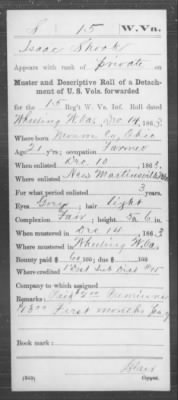 S | 15 | W.Va.
Isaac Shook
Appears with rank of Private on
Muster and Descriptive Roll of a Detach-
ment of U. S. Vols. forwarded
for the 15 Reg't W. Va. Inf. Roll dated
Wheeling W.Va. Dec 14, 1863.
Where born Monroe Co, Ohio
Age 21 y'rs; occupation Farmer
When enlisted Dec 10, 1863.
Where enlisted New Martinsville
For what period enlisted 3 years.
Eyes Grey; hair light
Complexion Fair; height 5 ft. 6 in.
When mustered in Dec 14, 1863
Where mustered in Wheeling W.Va.
Bounty paid $ 60/100; due $ /100
Where credited 1 Dist Sub Dist
Company to which assigned
Remarks: Paid $2.00 Premium
$13.00 First months pay
Book mark:
Blair
(339) Copyist.